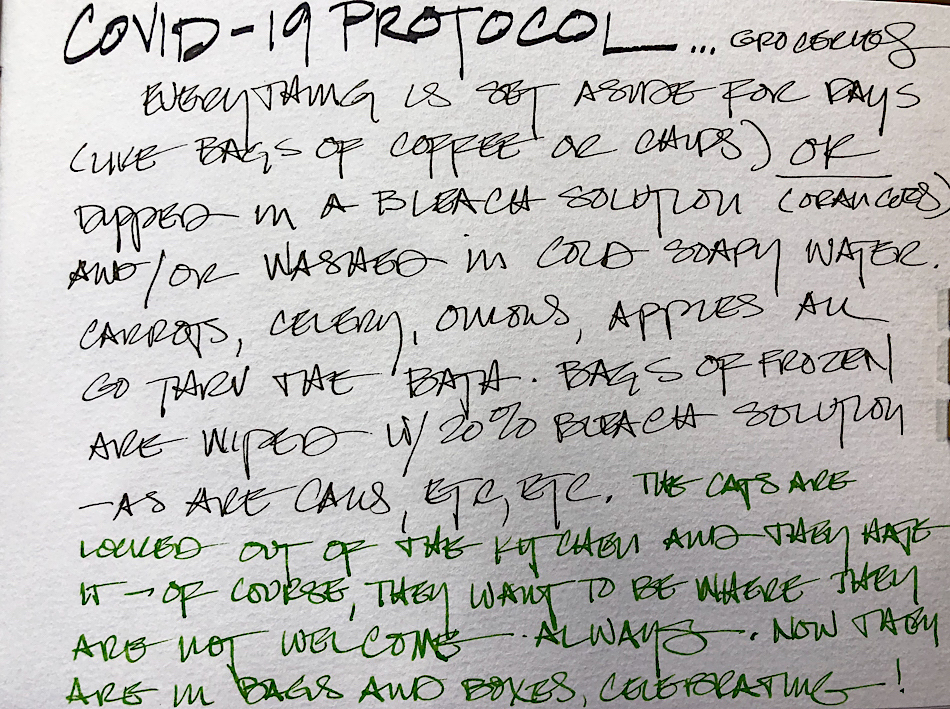 COVID-19 PROTOCOL... GROCERIES
EVERYTHING IS SET ASIDE FOR DAYS
(LIKE BAGS OF COFFEE OR CHIPS) OR
DIPPED IN A BLEACH SOLUTION (ORANGES)
AND/OR WASHED IN COLD SOAPY WATER.
CARROTS, CELERY, ONIONS, APPLES ALL
GO THRU THE BATH. BAGS OF FROZEN
ARE WIPED W/ 20% BLEACH SOLUTION
—AS ARE CANS, ETC, ETC. THE CATS ARE
LOCKED OUT OF THE KITCHEN AND THEY HATE
IT — OF COURSE, THEY WANT TO BE WHERE THEY
ARE NOT WELCOME. ALWAYS. NOW THEY
ARE IN BAGS AND BOXES, CELEBRATING!